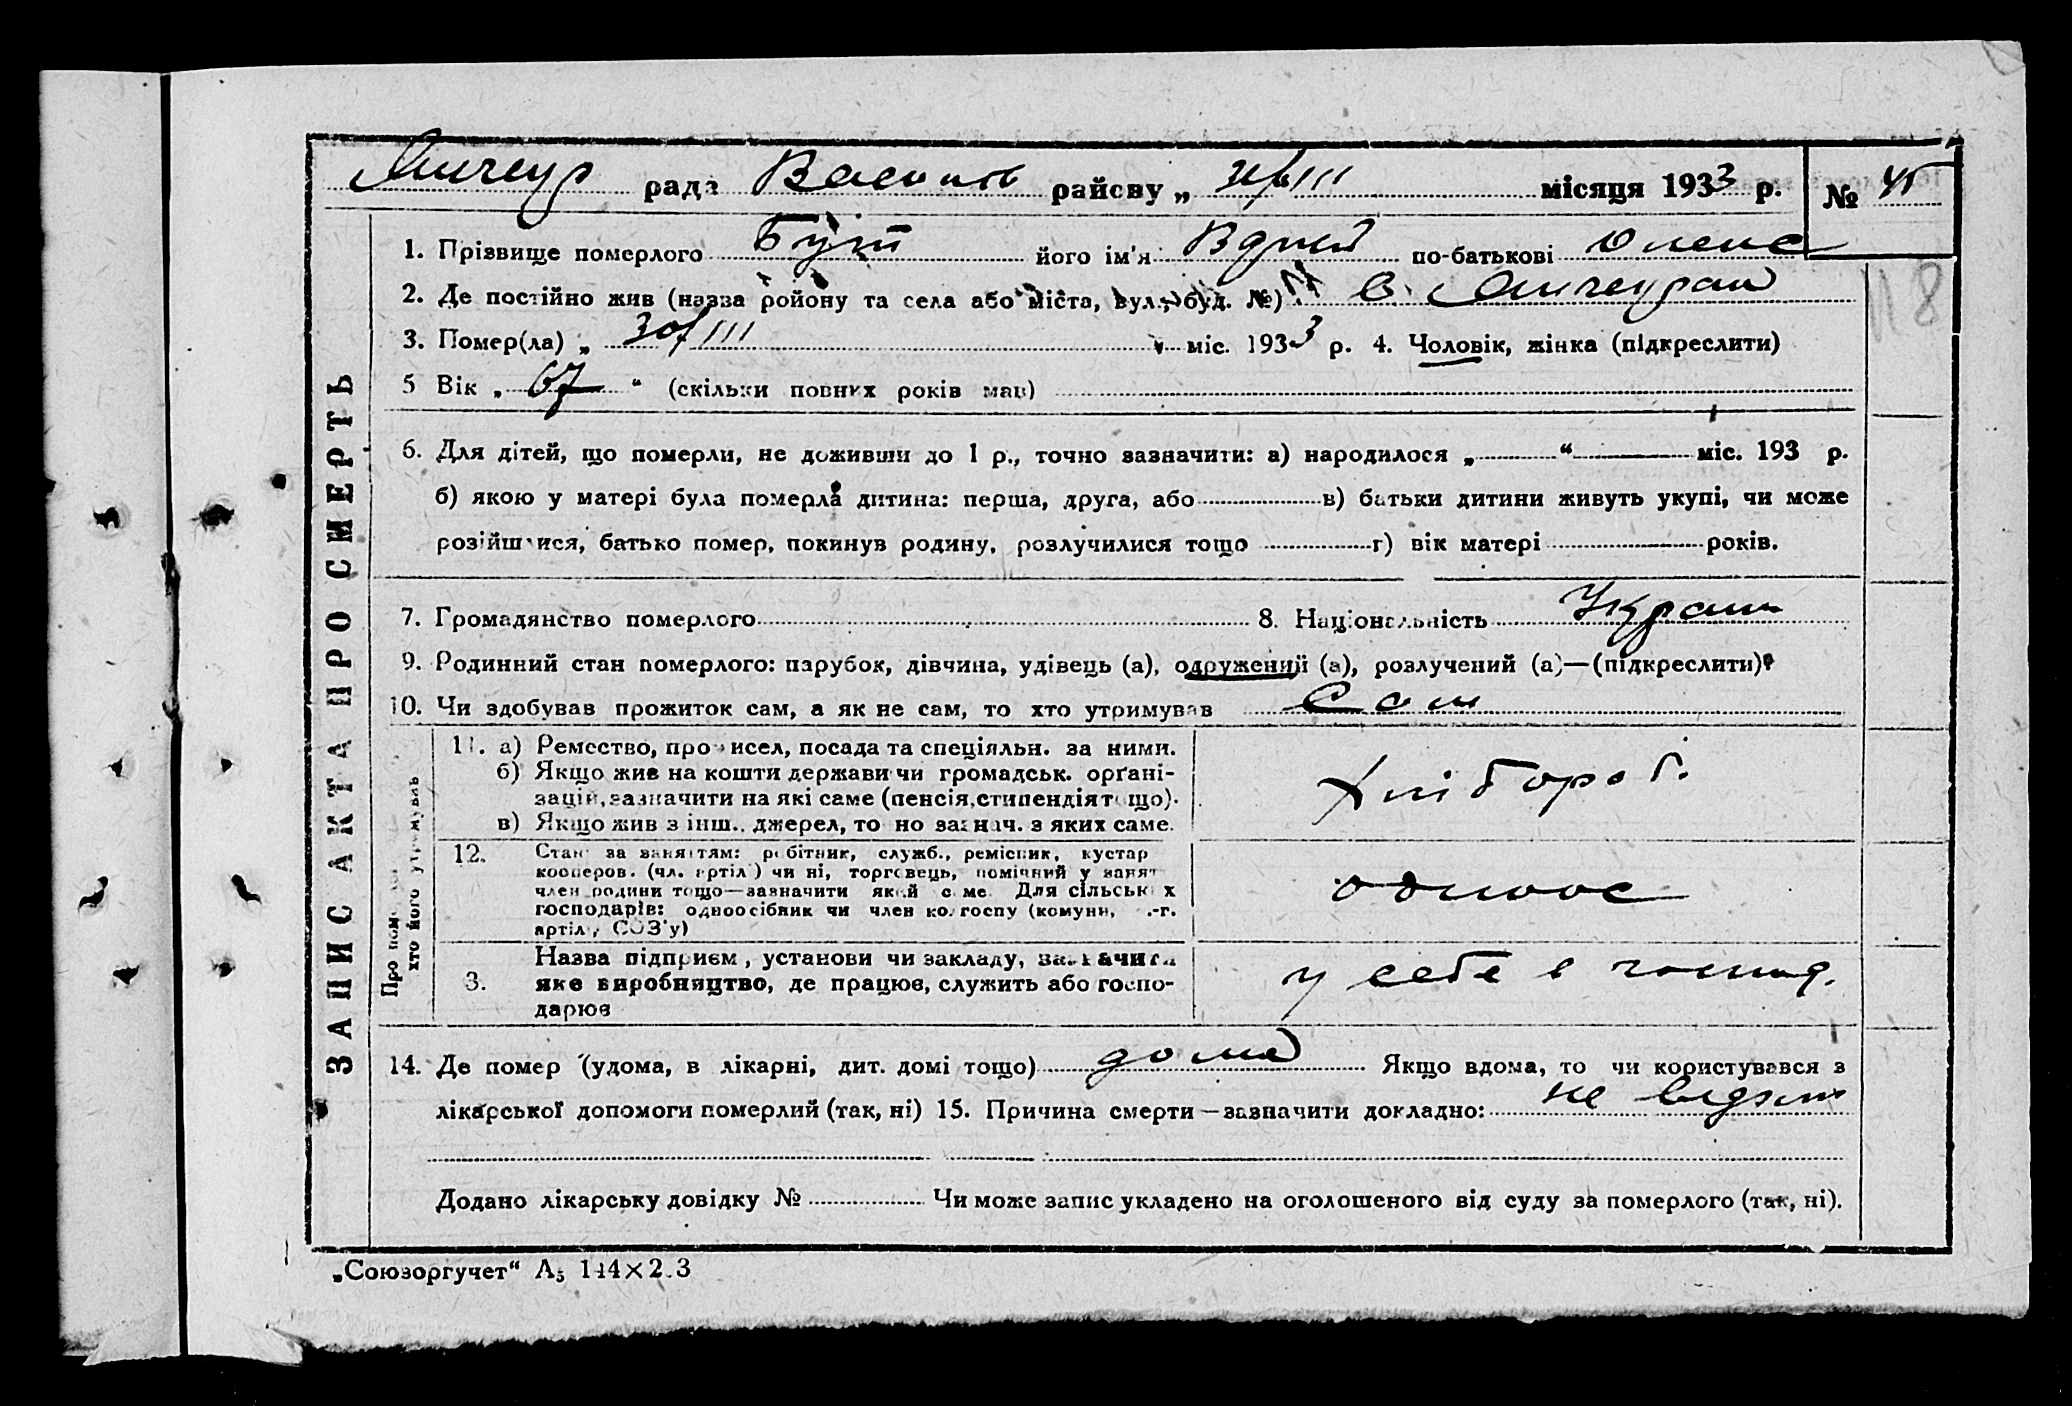 рада Василь району „ 31/III місяця 1933 р. № 45
1. Прізвище померлого його ім'я по-батькові
2. Де постійно жив (назва ройону та села або міста, вул., буд. №) с.
3. Помер(ла) „ 30/III міс. 1933 р. 4. Чоловік, жінка (підкреслити)
5 Вік „ 67 “ (скільки повних років мав)
6. Для дітей, що померли, не доживши до 1 р., точно зазначити: а) народилося „ “ міс. 193 р.
б) якою у матері була померла дитина: перша, друга, або в) батьки дитини живуть укупі, чи може
розійшлися, батько помер, покинув родину, розлучилися тощо г) вік матері років.
7. Громадянство померлого 8. Національність Украин
9. Родинний стан померлого: парубок, дівчина, удівець (а), одружений (а), розлучений (а)—(підкреслити)
10. Чи здобував прожиток сам, а як не сам, то хто утримував Сам
ЗАПИС АКТА ПРО СМЕРТЬ
хто його утримував
11. а) Ремество, промисел, посада та спеціяльн. за ними.
б) Якщо жив на кошти держави чи громадськ. орґані-
зацій, зазначити на які саме (пенсія, стипендія тощо).
в) Якщо жив з інш. джерел, то но зазнач. з яких саме.
Хлібороб.
12. Стан за заняттям: робітник, служб., ремісник, кустар
кооперов. (чл. артіл ) чи ні, торговець, помічний у занят
член родини тощо—зазначити який саме. Для сільських
господарів: одноосібник чи член колгоспу (комуни, .-г.
артіл , СОЗ'у)
одноос
3. Назва підприєм , установи чи закладу, зазначити
яке виробництво, де працює, служить або госпо-
дарює
у себе в господ.
14. Де помер (удома, в лікарні, дит. домі тощо) дома Якщо вдома, то чи користувався з
лікарської допомоги померлий (так, ні) 15. Причина смерти—зазначити докладно: не
Додано лікарську довідку № Чи може запис укладено на оголошеного від суду за померлого (так, ні).
„Союзоргучет“ А5 144×2.3
118